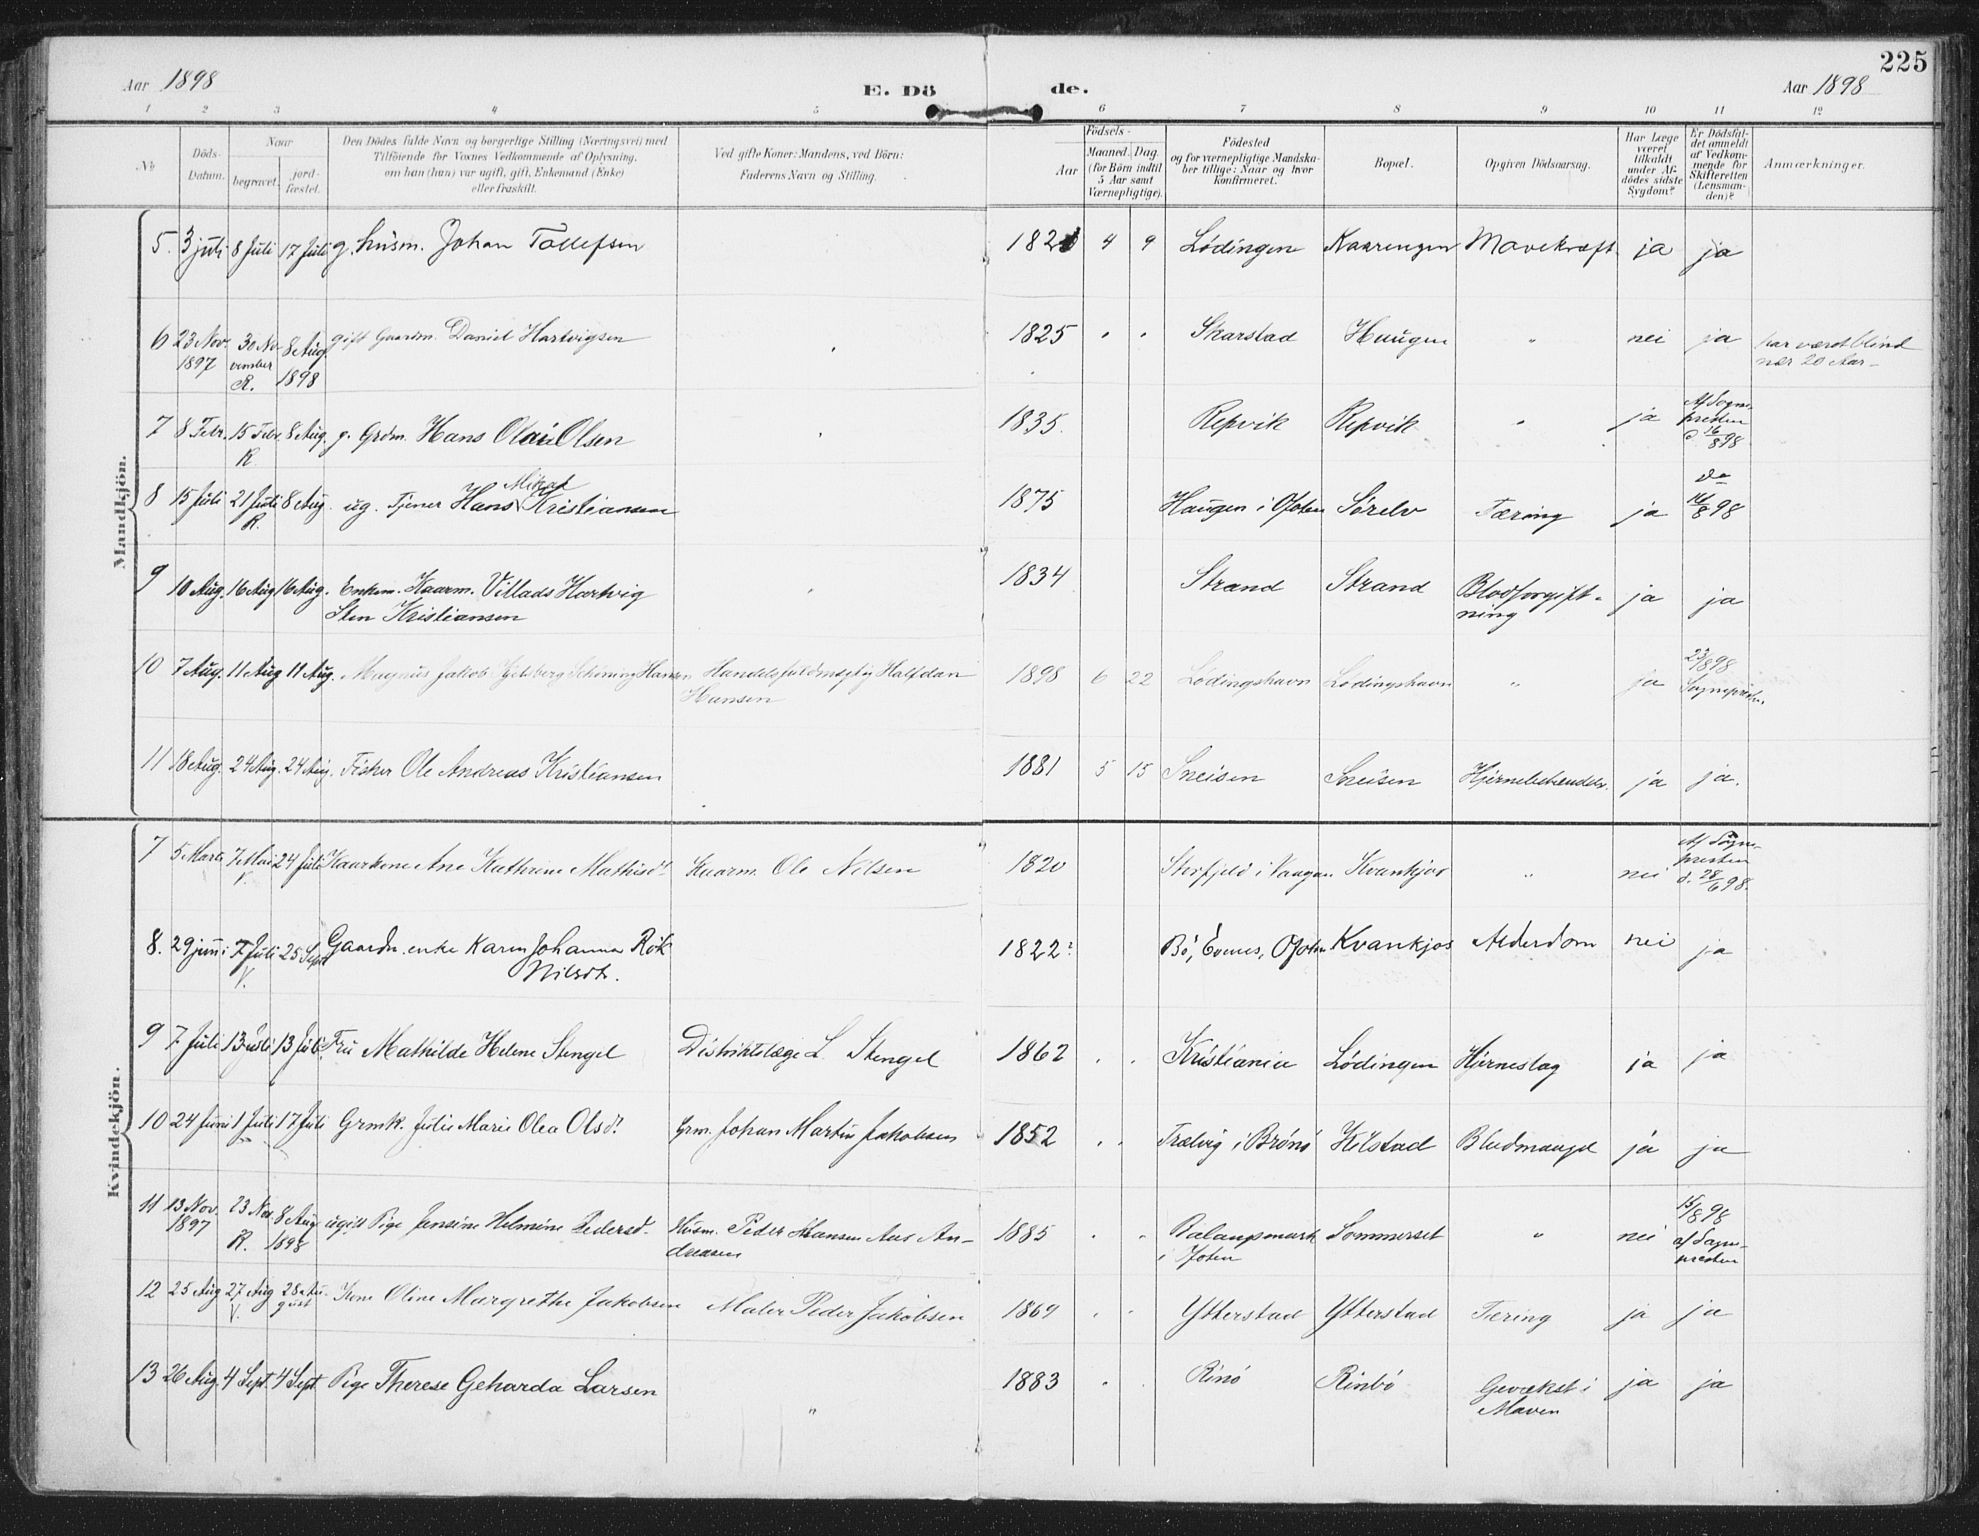 225
Aar 1898 E. Dö de. Aar 1898
1 2 3 4 5 6 7 8 9 10 11 12
No Döds-Datum. Naar begravet. jord-fæstet. Den Dödes fulde Navn og borgerlige Stilling (Næringsvei) med Tilföiende for Voxnes Vedkommende af Oplysning, om han (hun) var ugift, gift, Enkemand (Enke) eller fraskilt. Ved gifte Koner: Mandens, ved Börn: Faderens Navn og Stilling. Födsels- Aar Maaned. Dag. (for Börn indtil 5 Aar samt Værnepligtige). Födested og for værnepligtige Mandska-ber tillige: Naar og hvor Konfirmeret. Bopæl. Opgiven Dödsaarsag. Har Læge været tilkaldt under Af-dödes sidste Sygdom? Er Dödsfal-det anmeldt af Vedkom-mende for Skifteretten (Lensman-den)? Anmærkninger.
Mandkjön.
5. 3 juli 8 Juli 17 Juli g. husm. Johan Tollefsen 182 4 9 Lødingen Kaaringen Mavekræft ja ja
6 23 Nov. 1897 30 No-vember R. 8 Aug 1898 gift Gaardm. Daniel Hartvigsen 1825 " " Skarstad Haugen " nei ja har været blind
nær 20 Aar
7 8 Febr. 15 Febr. R. 8 Aug. g. Grdm. Hans Olai Olsen 1835. Repvik Repvik " ja Af Sogne-presten d 16/8 98
8 15 Juli 21 Juli R. 8 Aug. ug. Tjener Hans Mikal Kristiansen 1875 Haugen i Ofoten Sørelv Tæring ja do 16/8 98
9 10 Aug. 16 Aug 16 Aug. Enkem. Kaarm. Villads Hartvig 1834 Strand Strand Blodforgift- ja ja
Sten Kristiansen ning
10 7 Aug. 11 Aug 11 Aug. Magnus Jakob Schöning Hansen Handelsfuldmægtig Halfdan 1898 6 22 Lødingshavn Lødingshavn " ja 23/8 98
Hansen Sognepresten
11 18 Aug. 24 Aug. 24 Aug. Fisker Ole Andreas Kristiansen 1881 5 15 Sneisen Sneisen Hjernebetændelse. ja ja.
Kvindekjön.
7 5 Marts 7 Mai V. 24 Juli Kaarkone Ane Kathrine Mathisdt Kaarm. Ole Nilsen 1820 Storfjeld i Vaagan Kvankjos " nei Af Sogne-presten d. 28/6 98.
8. 29 juni 7 Juli V. 25 Sept Gaardm. enke Karen Johanna Rök 1822? Bö, Evenes, Ofoten Kvankjos Alderdom nei ja
Nilsdt.
9 7 Juli 13 Juli 13 Juli Fru Mathilde Helene Stengel Distriktslæge L. Stengel 1862 " " Kristiania Lødingen Hjerneslag ja ja
10 24 Juni 1 Juli 17 Juli Grmk. Julie Marie Olea Olsdt. Grm. Johan Martin Jakobsen 1852 " " Trælvig i Brönö Kilstad Blodmangel ja ja
11 13 Nov. 1897 23 Nov R. 8 Aug 1898 ugift Pige Jensine Helmine Pedersd. Husm. Peder Hansen Aas An- 1885 " " Balangsmark Sommerset " nei 15/8 98
dreasen i Ofoten af Sogne-presten
12 25 Aug 27 Aug V. 28 Au-gust Kone Oline Margrethe Jakobsen Maler Peder Jakobsen 1869 " " Ytterstad Ytterstad Tæring ja ja
13 26 Aug. 4 Sept. 4 Sept. Pige Therese Geharda Larsen " 1883 " " Rinö Rinbö Gevækst i ja ja
Maven